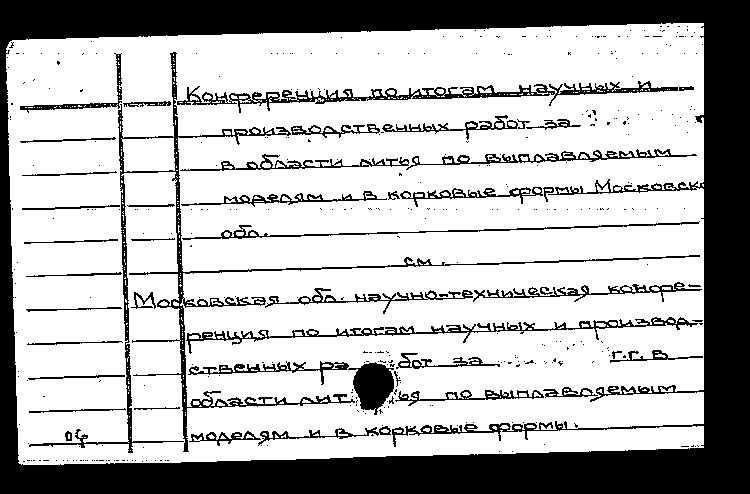 Конференция по итогам научных и
производственных работ за
в области литья по выплавляемым
моделям и в корковые формы Московск
обл.
см.
Московская обл. научно-техническая конфе-
ренция по итогам научных и производ-
ственных работ за г.г. в
области литья по выплавляемым
моделям и в корковые формы.